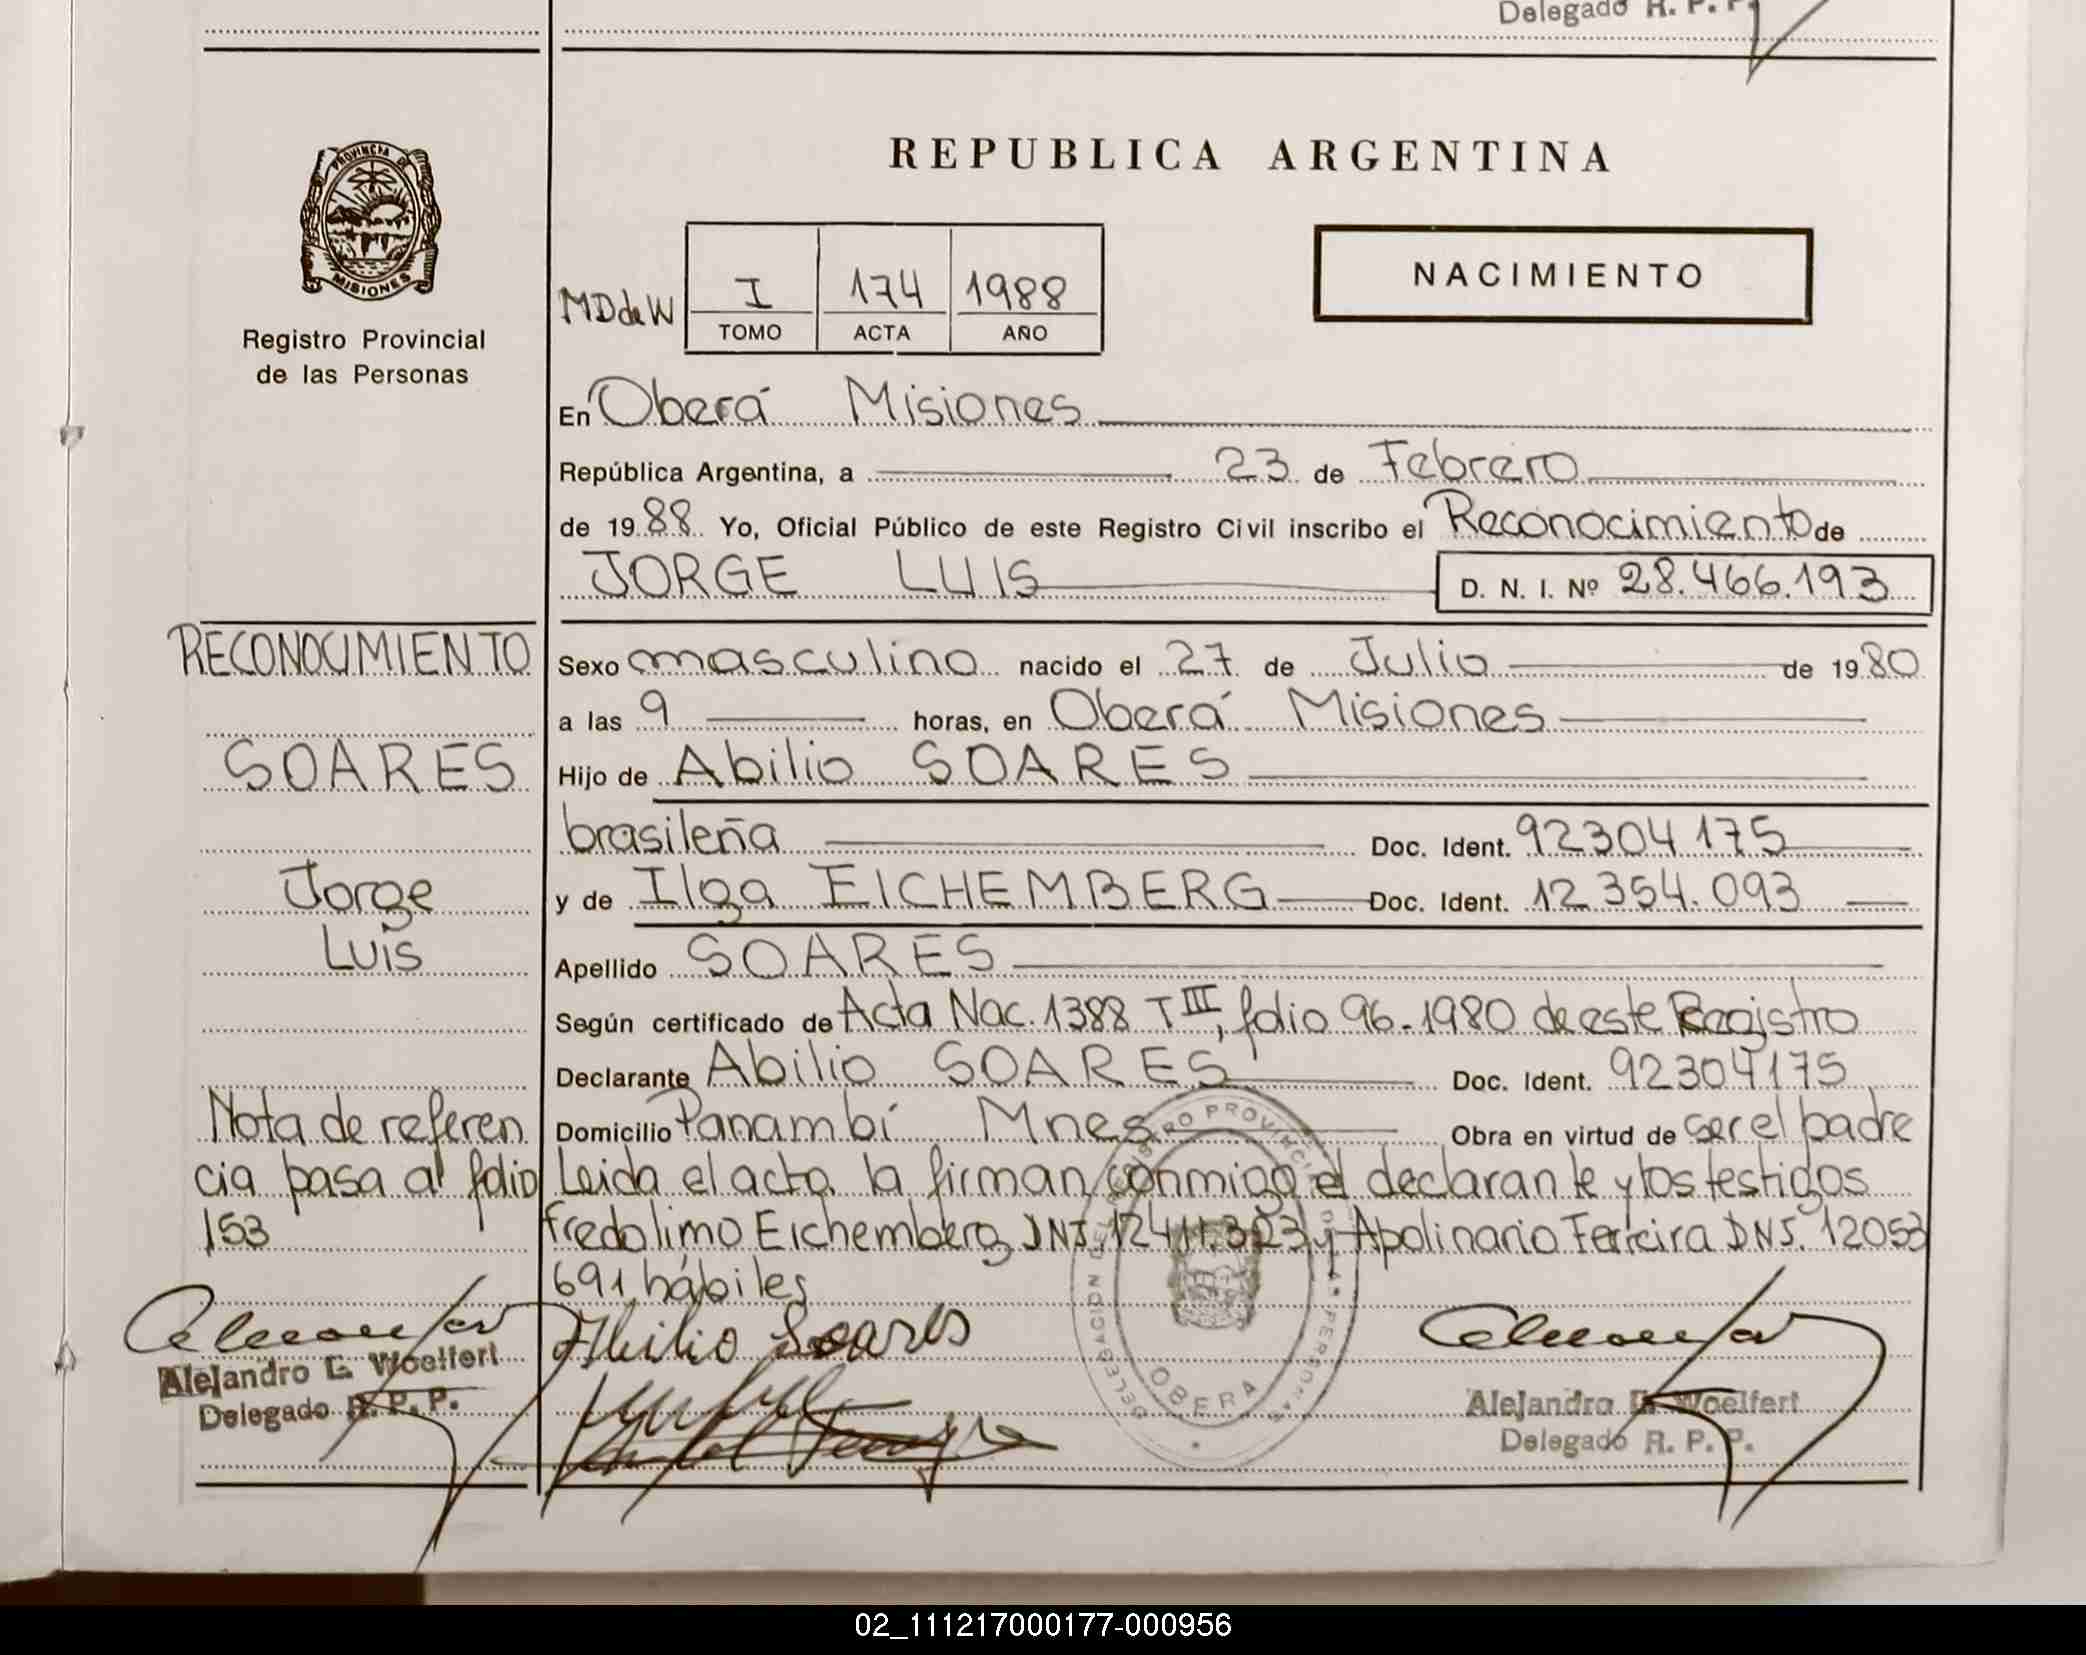 Delegado R. P. P.
PROVINCIA DE
MISIONES
Registro Provincial
de las Personas
REPUBLICA ARGENTINA
NACIMIENTO
MDdeW I 174 1988
TOMO ACTA AÑO
En Oberá Misiones
República Argentina, a 23 de Febrero
de 1988 Yo, Oficial Público de este Registro Civil inscribo el Reconocimiento de
JORGE LUIS D. N. I. Nº 28.466.193
RECONOCIMIENTO
SOARES
Jorge
Luis
Sexo masculino nacido el 27 de Julio de 1980
a las 9 horas, en Oberá Misiones
Hijo de Abilio SOARES
brasileña Doc. Ident. 92304175
y de Ilga EICHEMBERG Doc. Ident. 12.354.093
Apellido SOARES
Según certificado de Acta Nac. 1388 T III, folio 96-1980 de este Registro
Declarante Abilio SOARES Doc. Ident. 92304175
Domicilio Panambí Mnes Obra en virtud de ser el padre
Leida el acta la firman conmigo el declarante y los testigos
Fredolimo Eichemberg DNI. 12411.323 y Apolinario Ferreira DNI. 12053
691 hábiles
Nota de referen
cia pasa al folio
153
Abilio Soares
Alejandro E. Woelfert
Delegado R. P. P.
DELEGACION DEL REGISTRO PROVINCIAL DE LAS PERSONAS
OBERA
Alejandro E. Woelfert
Delegado R. P. P.
02_111217000177-000956